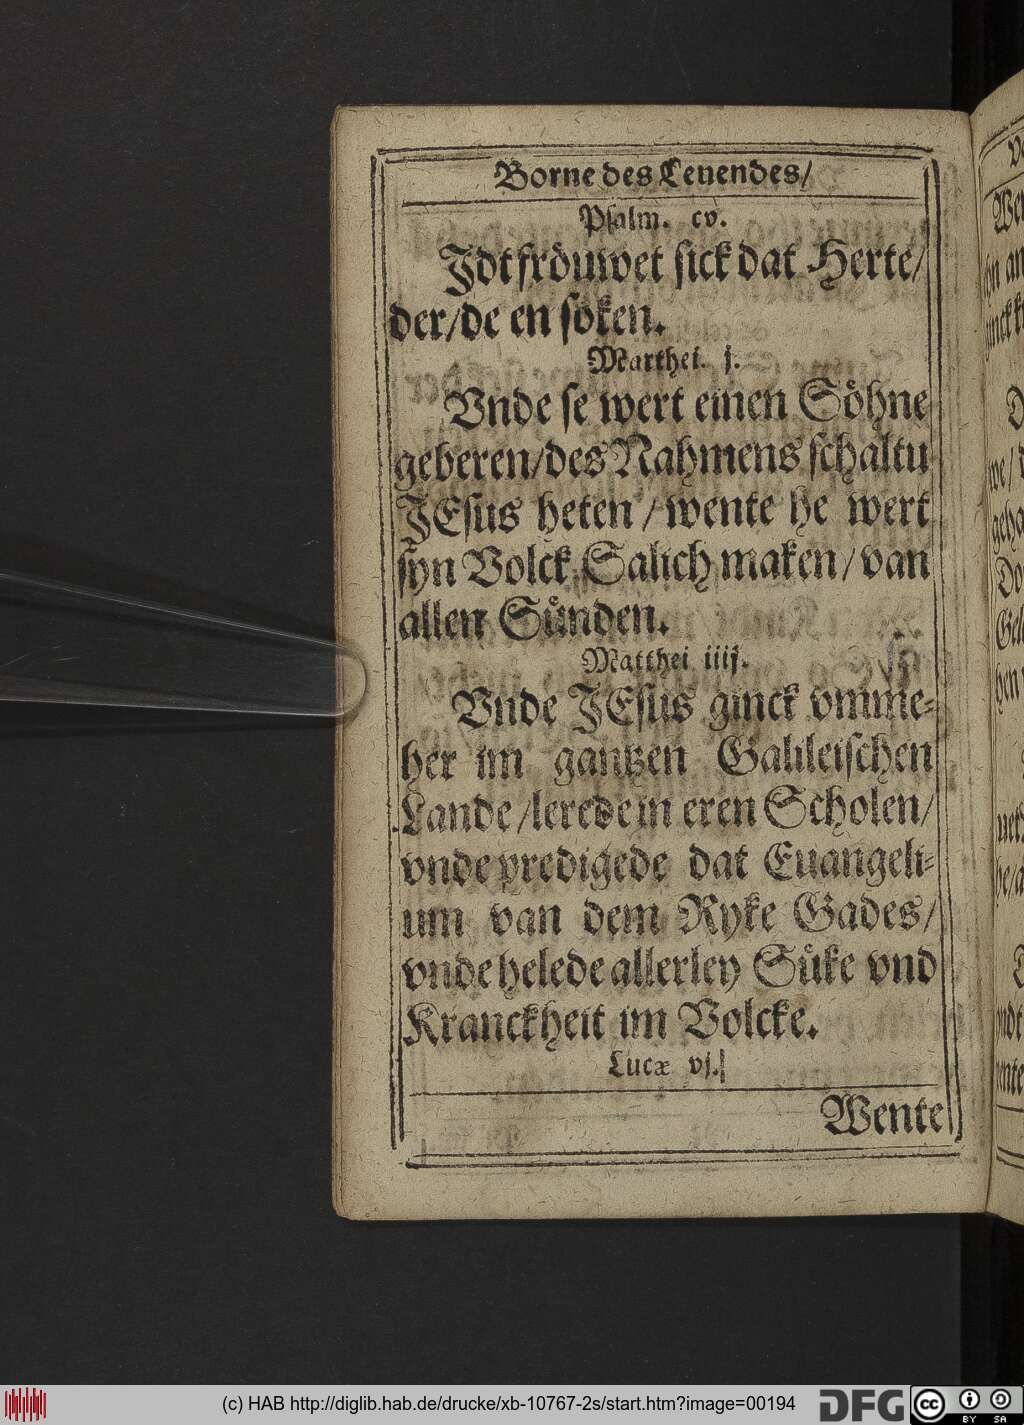 Borne des Leuendes/
Psalm. cv.
Jdt fröuwet sick dat Herte/
der/de en söken.
Matthei. j.
Vnde se wert einen Söhne
geberen/des Nahmens schaltu
JEsus heten/wente he wert
syn Volck Salich maken/van
allen Sünden.
Matthei iiij.
Vnde JEsus ginck vmme-
her im gantzen Galileischen
Lande/lerede in eren Scholen/
vnde predigede dat Euangeli-
um van dem Ryke Gades/
vnde helede allerley Süke vnd
Kranckheit im Volcke.
Lucæ vj.
Wente
(c) HAB http://diglib.hab.de/drucke/xb-10767-2s/start.htm?image=00194
DFG
cc BY SA